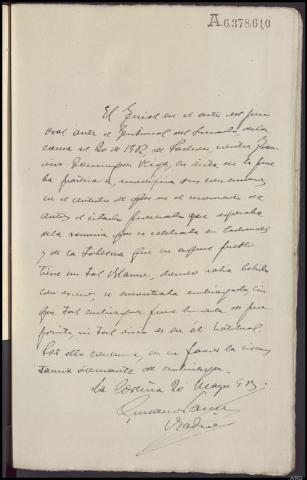 A6.378.610
El Fiscal en el acto del juicio
oral ante el Tribunal del Jurado de la
causa nº 20 de 1912 de Padron, contra Fran
cisco Dominguez Vieja, en vista de la prue
ba practicada, modifica sus conclusiones
en el sentido de que en el momento de
autos el citado procesado que regresaba
de la romeria que se celebraba en
y de la taberna que en aquel pueblo
tiene un tal Blanco, donde habia bebido
con exceso, se encontraba embriagado sin
que tal embriaguez fuese buscada de pro
posito ni tal vicio es en él habitual.
Por ello concurre, en su favor la circuns
tancia atenuante de embriaguez.
La Coruña 20 Mayo 913.